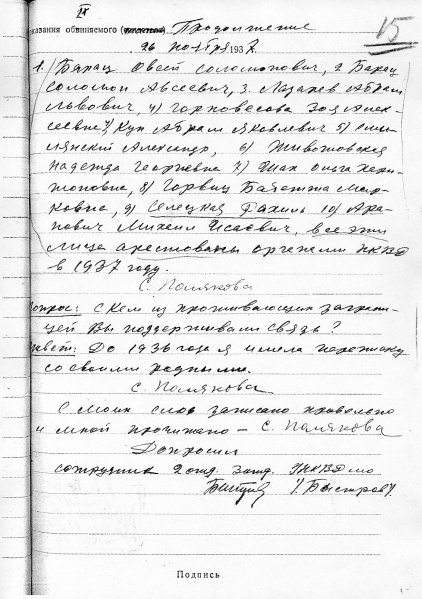 IV
15
показания обвиняемого Продолжение
26 ноября 1937
1. Барац Овсей Соломонович, 2. Барац
Соломон Авсеевич, 3. Лазарев Абрам
Львович 4) Горновесова Зоя Алек-
сеевна, Кун Абрам Яковлевич 5)
Александр, 6) Живоновская
Надежда Георгиевна 7) Шах Ольга Хари-
тоновна, 8) Горвиц Бабетта Мар-
ковна, 9) Селецкая Рахиль 10) Ара-
нович Михаил Исаевич, все эти
лица арестованы органами НКВД
в 1937 году.
С. Полякова
Вопрос: С кем из проживающих заграни-
цей Вы поддерживали связь?
Ответ: До 1936 года я имела переписку
со своими родными.
С. Полякова
С моих слов записано правильно
и мной прочитано – С. Полякова
Допросил
сотрудник 2 отд. 3 отд. УНКВД мо
/Быстров/.
Подпись